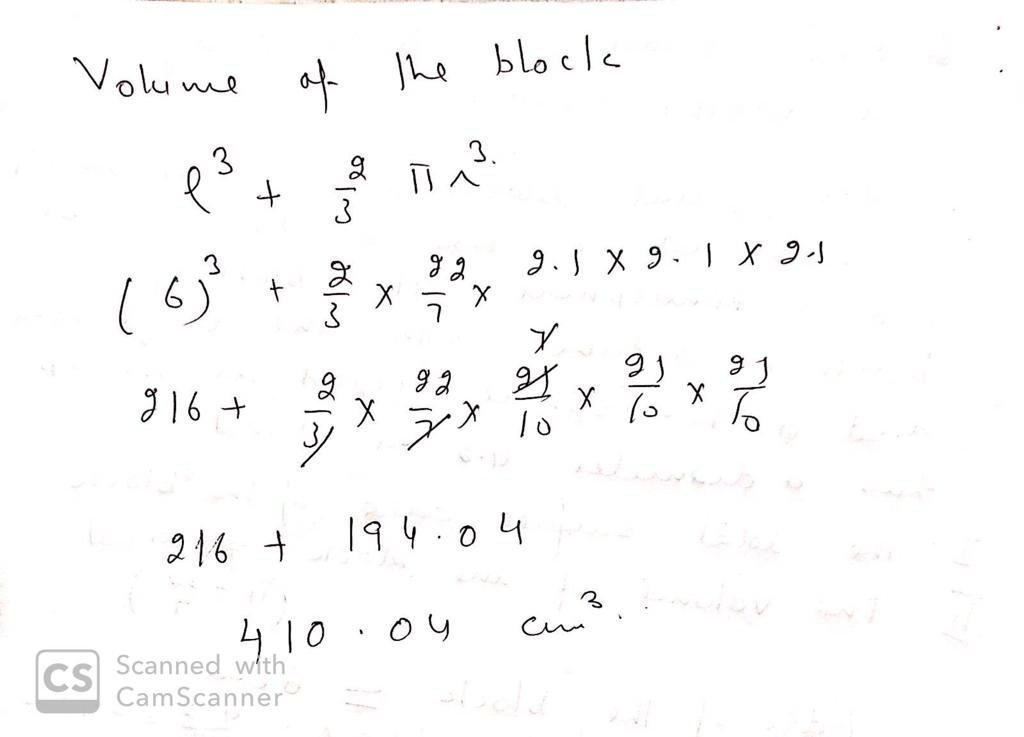 Volume of the block
l³ + 2/3 πr³.
(6)³ + 2/3 × 22/7 × 2.1 × 2.1 × 2.1
216 + 2/3 × 22/7 × 21/10 × 21/10 × 21/10
216 + 194.04
410.04 cm³.
CS Scanned with
CamScanner